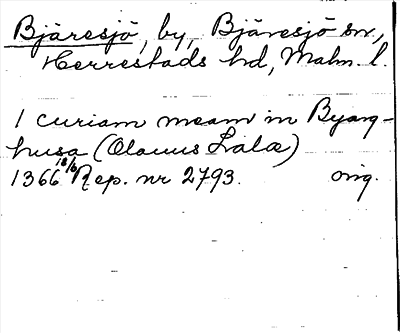 Bjäresjö, by, Bjäresjö sn,
Herrestads hd, Malm. l.
1 curiam meam in Byærg-
husa (Olauus Lalæ)
1366 18/6 Rep. nr 2793. orig.